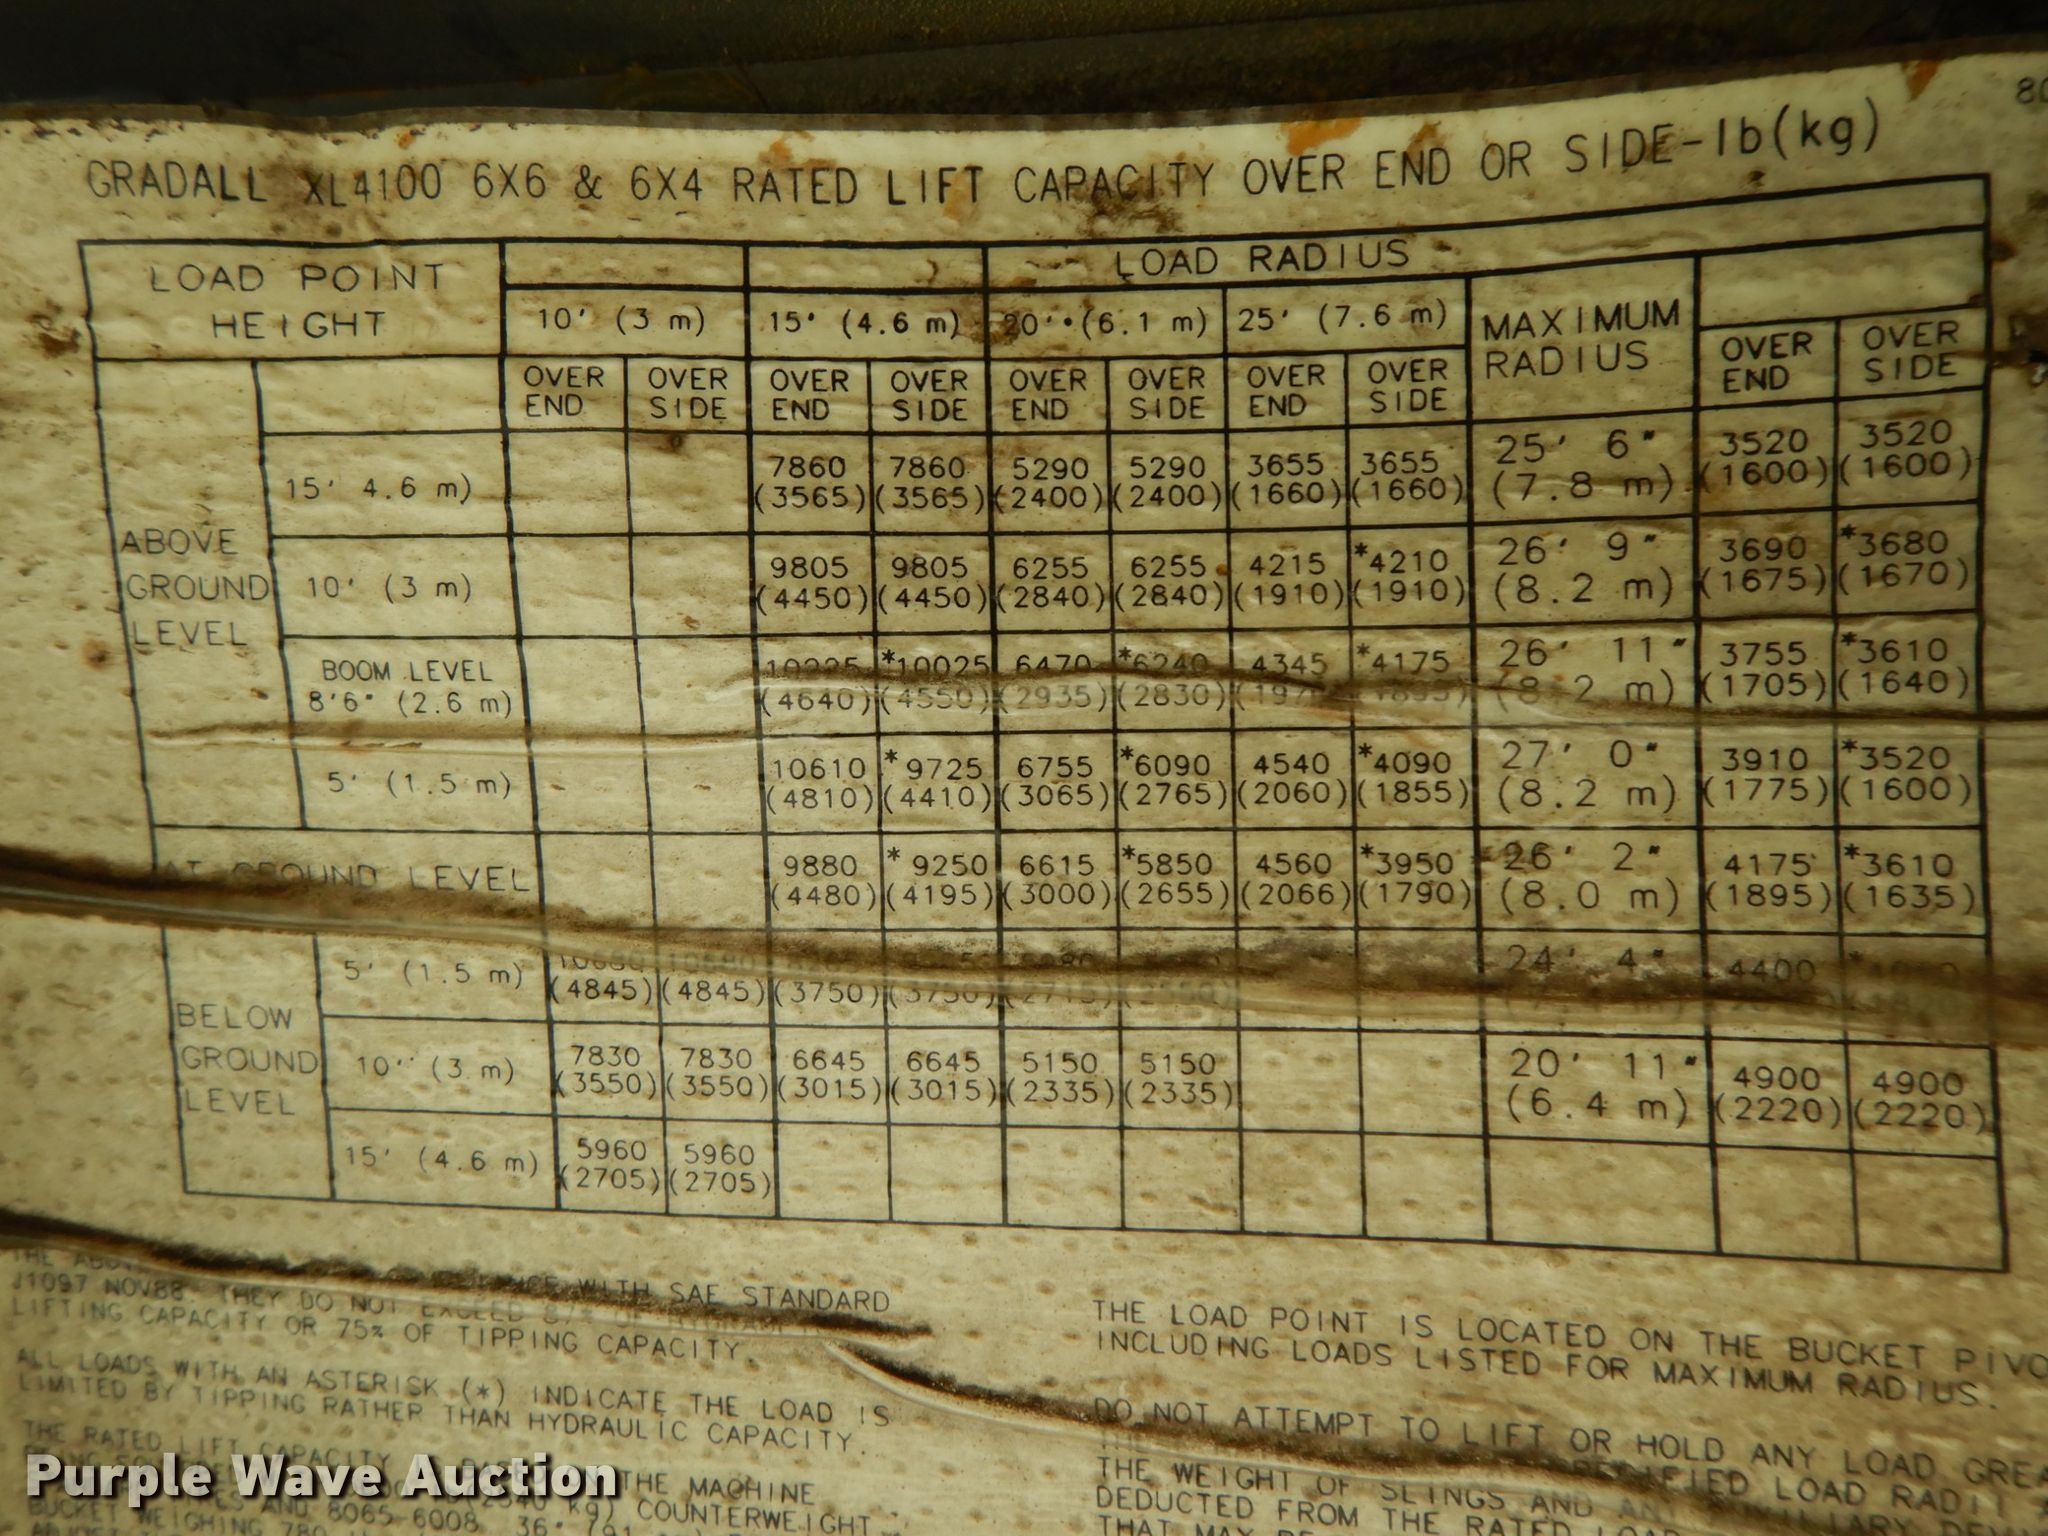 80
GRADALL XL4100 6X6 & 6X4 RATED LIFT CAPACITY OVER END OR SIDE-lb(kg)
LOAD POINT HEIGHT LOAD RADIUS
10' (3 m) 15' (4.6 m) 20' (6.1 m) 25' (7.6 m) MAXIMUM RADIUS
OVER END OVER SIDE OVER END OVER SIDE OVER END OVER SIDE OVER END OVER SIDE OVER END OVER SIDE
ABOVE GROUND LEVEL
15' 4.6 m) 7860 7860 5290 5290 3655 3655 25' 6" 3520 3520
(3565) (3565) (2400) (2400) (1660) (1660) (7.8 m) (1600) (1600)
10' (3 m) 9805 9805 6255 6255 4215 *4210 26' 9" 3690 *3680
(4450) (4450) (2840) (2840) (1910) (1910) (8.2 m) (1675) (1670)
BOOM LEVEL 10225 *10025 6470 *6240 4345 *4175 26' 11" 3755 *3610
8'6" (2.6 m) (4640) (4550) (2935) (2830) (1895) (8.2 m) (1705) (1640)
5' (1.5 m) 10610 *9725 6755 *6090 4540 *4090 27' 0" 3910 *3520
(4810) (4410) (3065) (2765) (2060) (1855) (8.2 m) (1775) (1600)
AT GROUND LEVEL 9880 *9250 6615 *5850 4560 *3950 26' 2" 4175 *3610
(4480) (4195) (3000) (2655) (2066) (1790) (8.0 m) (1895) (1635)
BELOW GROUND LEVEL
5' (1.5 m) 24' 4" 4400
(4845) (4845) (3750) (3750)
10'' (3 m) 7830 7830 6645 6645 5150 5150 20' 11" 4900 4900
(3550) (3550) (3015) (3015) (2335) (2335) (6.4 m) (2220) (2220)
15' (4.6 m) 5960 5960
(2705) (2705)
THE WITH SAE STANDARD
J1097 NOV88. THEY DO NOT EXCEED 87% OF
LIFTING CAPACITY OR 75% OF TIPPING CAPACITY.
ALL LOADS WITH AN ASTERISK (*) INDICATE THE LOAD IS
LIMITED BY TIPPING RATHER THAN HYDRAULIC CAPACITY.
THE RATED LIFT CAPACITY
THE MACHINE
AND 8065-6008, 36" COUNTERWEIGHT
BUCKET WEIGHING 780
THE LOAD POINT IS LOCATED ON THE BUCKET PIVO
INCLUDING LOADS LISTED FOR MAXIMUM RADIUS.
DO NOT ATTEMPT TO LIFT OR HOLD ANY LOAD GREA
SPECIFIED LOAD RADII
THE WEIGHT OF SLINGS AND
DEDUCTED FROM THE RATED LOAD
THAT MAY BE
Purple Wave Auction